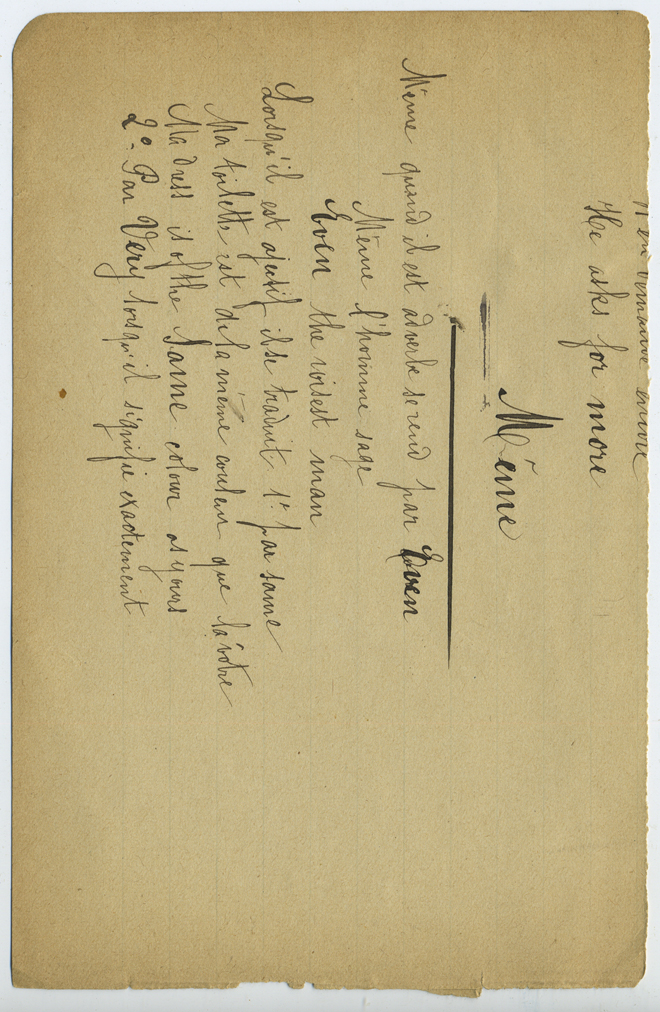 Il en demande encore
He asks for more
Même
Même quand il est adverbe se rend par Even
Même l'homme sage
Even the wisest man
Lorsqu'il est ajectif il se traduit 1º par same
Ma toilette est de la même couleur que la vôtre
Ma dress is of the same colour as yours
2º Par Very lorsqu'il signifie exactement